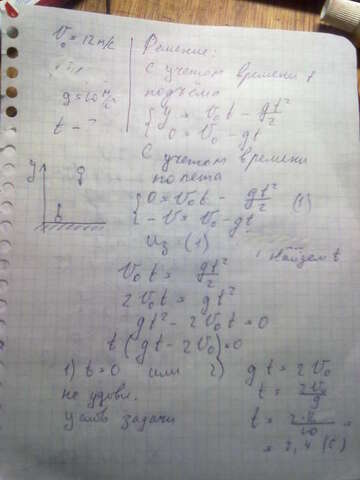 V₀ = 12 м/с
g = 10 м/с²
t - ?
Решение:
С учетом времени t
подъема
{ y = V₀t - gt²/2
{ 0 = V₀ - gt
С учетом времени
полета
{ 0 = V₀t - gt²/2 (1)
{ -V = V₀ - gt
Из (1) найдем t
V₀t = gt²/2
2V₀t = gt²
gt² - 2V₀t = 0
t(gt - 2V₀) = 0
1) t = 0 или 2) gt = 2V₀
не удовл. t = 2V₀/g
услов задачи
= 2,4 (с)
y
g